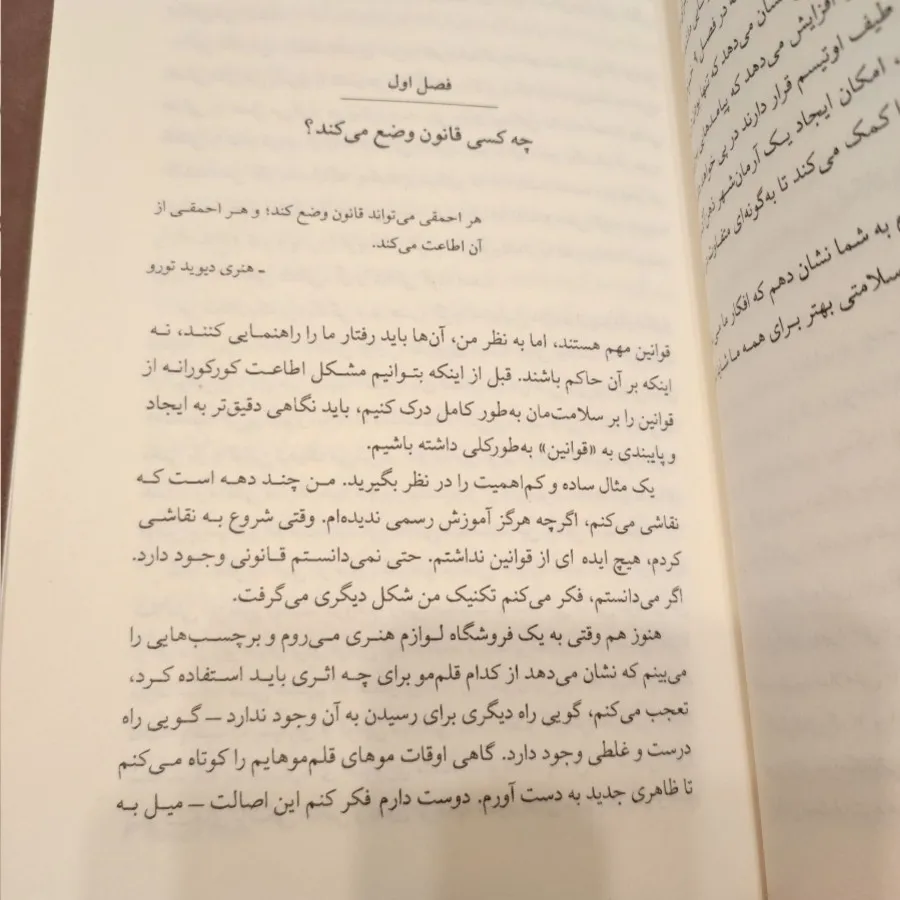 فصل اول
چه کسی قانون وضع می‌کند؟
هر احمقی می‌تواند قانون وضع کند؛ و هـر احمقـی از
آن اطاعت می‌کند.
ـ هنری دیوید تورو
قوانین مهم هستند، اما به نظر من، آن‌ها باید رفتار ما را راهنمـایی کننـد، نـه
اینکه بر آن حاکم باشند. قبل از اینکه بتـوانیم مشـکل اطاعـت کورکورانـه از
قوانین را بر سلامت‌مان به‌طور کامل درک کنیم، باید نگاهی دقیق‌تر به ایجاد
و پایبندی به «قوانین» به‌طورکلی داشته باشیم.
یک مثال ساده و کم‌اهمیت را در نظر بگیرید. مـن چنـد دهـه اسـت کـه
نقاشی می‌کنم، اگرچه هرگز آموزش رسمی ندیده‌ام. وقتی شروع بـه نقاشـی
کردم، هیچ ایده ای از قوانین نداشتم. حتی نمی‌دانستم قـانونی وجـود دارد.
اگر می‌دانستم، فکر می‌کنم تکنیک من شکل دیگری می‌گرفت.
هنوز هم وقتی به یک فروشگاه لـوازم هنـری مـی‌روم و برچسـب‌هایی را
می‌بینم که نشان می‌دهد از کدام قلم‌مو برای چـه اثـری بایـد اسـتفاده کـرد،
تعجب می‌کنم، گویی راه دیگری برای رسیدن به آن وجود ندارد ـــ گـویی راه
درست و غلطی وجود دارد. گاهی اوقات موهای قلم‌موهایم را کوتاه مـی‌کنم
تا ظاهری جدید به دست آورم. دوست دارم فکر کنم این اصالت ـــ میـل بـه
افزایش می‌دهد که پیامدهای
طیف اوتیسم قرار دارند در پی
امکان ایجاد یک آرمان‌شهر
کمک می‌کند تا به‌گونه‌ای متفاوت
به شما نشان دهم که افکار ما
سلامتی بهتر برای همه ما